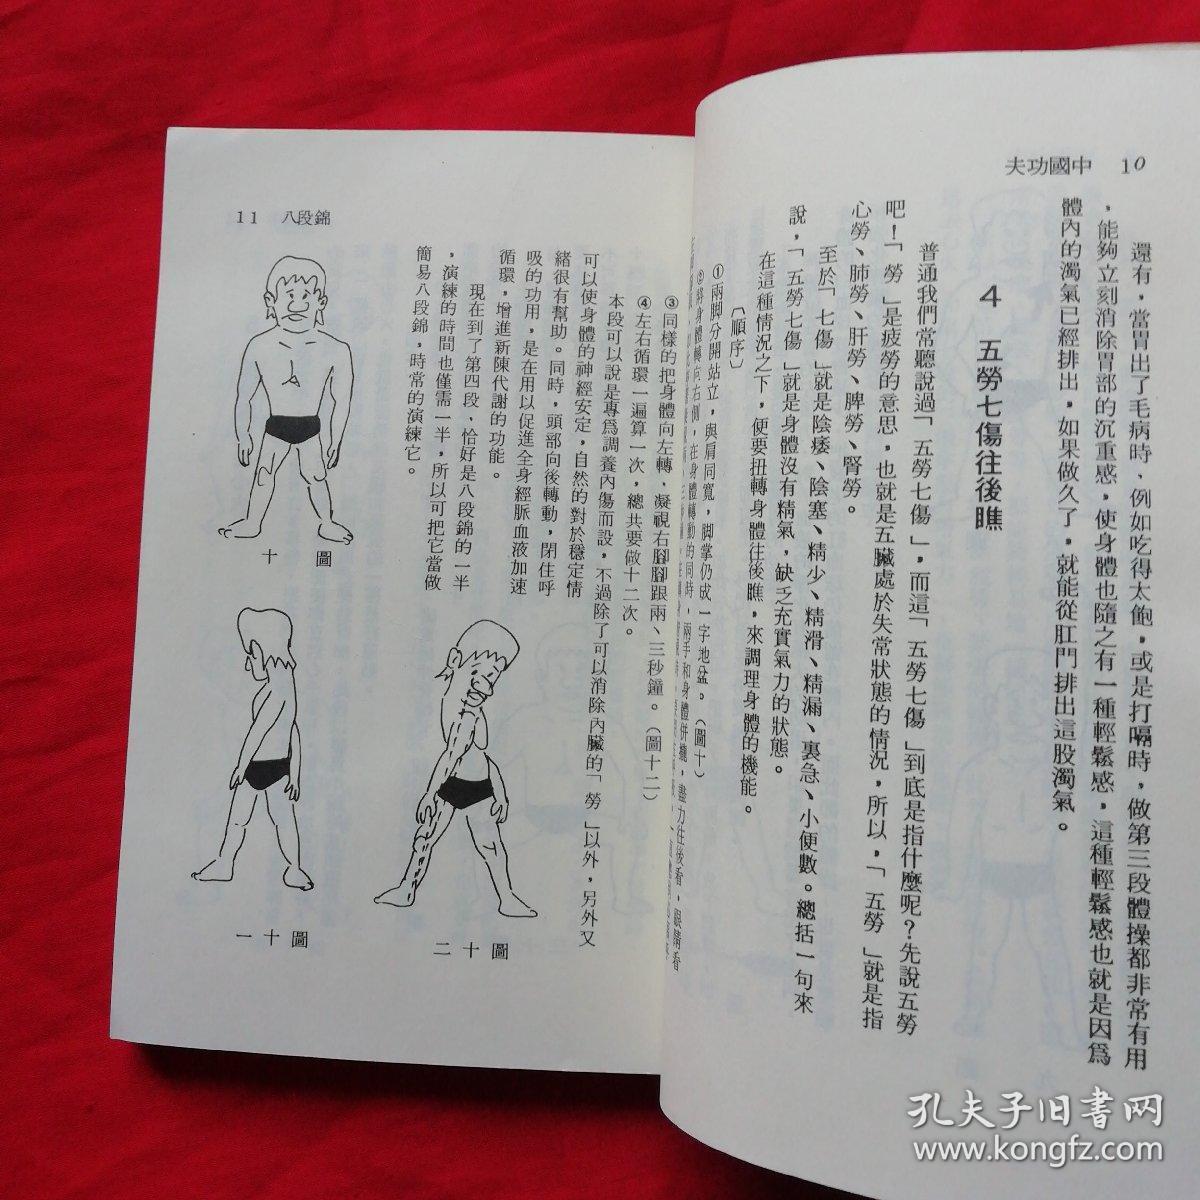 夫功國中　10
還有，當胃出了毛病時、例如吃得太飽，或是打嗝時，做第三段體操都非常有用
，能夠立刻消除胃部的沉重感，使身體也隨之有一種輕鬆感，這種輕鬆感也就是因爲
體內的濁氣已經排出，如果做久了，就能從肛門排出這股濁氣。
4　五勞七傷往後瞧
普通我們常聽說過「五勞七傷」，而這「五勞七傷」到底是指什麼呢？先說五勞
吧！「勞」是疲勞的意思，也就是五臟處於失常狀態的情況，所以，「五勞」就是指
心勞、肺勞、肝勞、脾勞、腎勞。
至於「七傷」就是陰痿、陰塞、精少、精滑、精漏、裏急、小便數。總括一句來
說，「五勞七傷」就是身體沒有精氣，缺乏充實氣力的狀態。
在這種情況之下，便要扭轉身體往後瞧，來調理身體的機能。
〔順序〕
①兩脚分開站立，與肩同寬，脚掌仍成一字地盆。（圖十）
②將身體轉向右側，在身體轉動的同時，兩手和身體併攏，盡力往後看，眼睛看
11　八段錦
③同樣的把身體向左轉、凝視右腳腳跟兩、三秒鐘。（圖十二）
④左右循環一遍算一次，總共要做十二次。
本段可以說是專爲調養內傷而設，不過除了可以消除內臟的「勞」以外，另外又
可以使身體的神經安定，自然的對於穩定情
緒很有幫助。同時，頭部向後轉動，閉住呼
吸的功用，是在用以促進全身經脈血液加速
循環，增進新陳代謝的功能。
現在到了第四段、恰好是八段錦的一半
，演練的時間也僅需一半，所以可把它當做
簡易八段錦，時常的演練它。
十　圖
一十圖
二十圖
孔夫子旧书网
www.kongfz.com